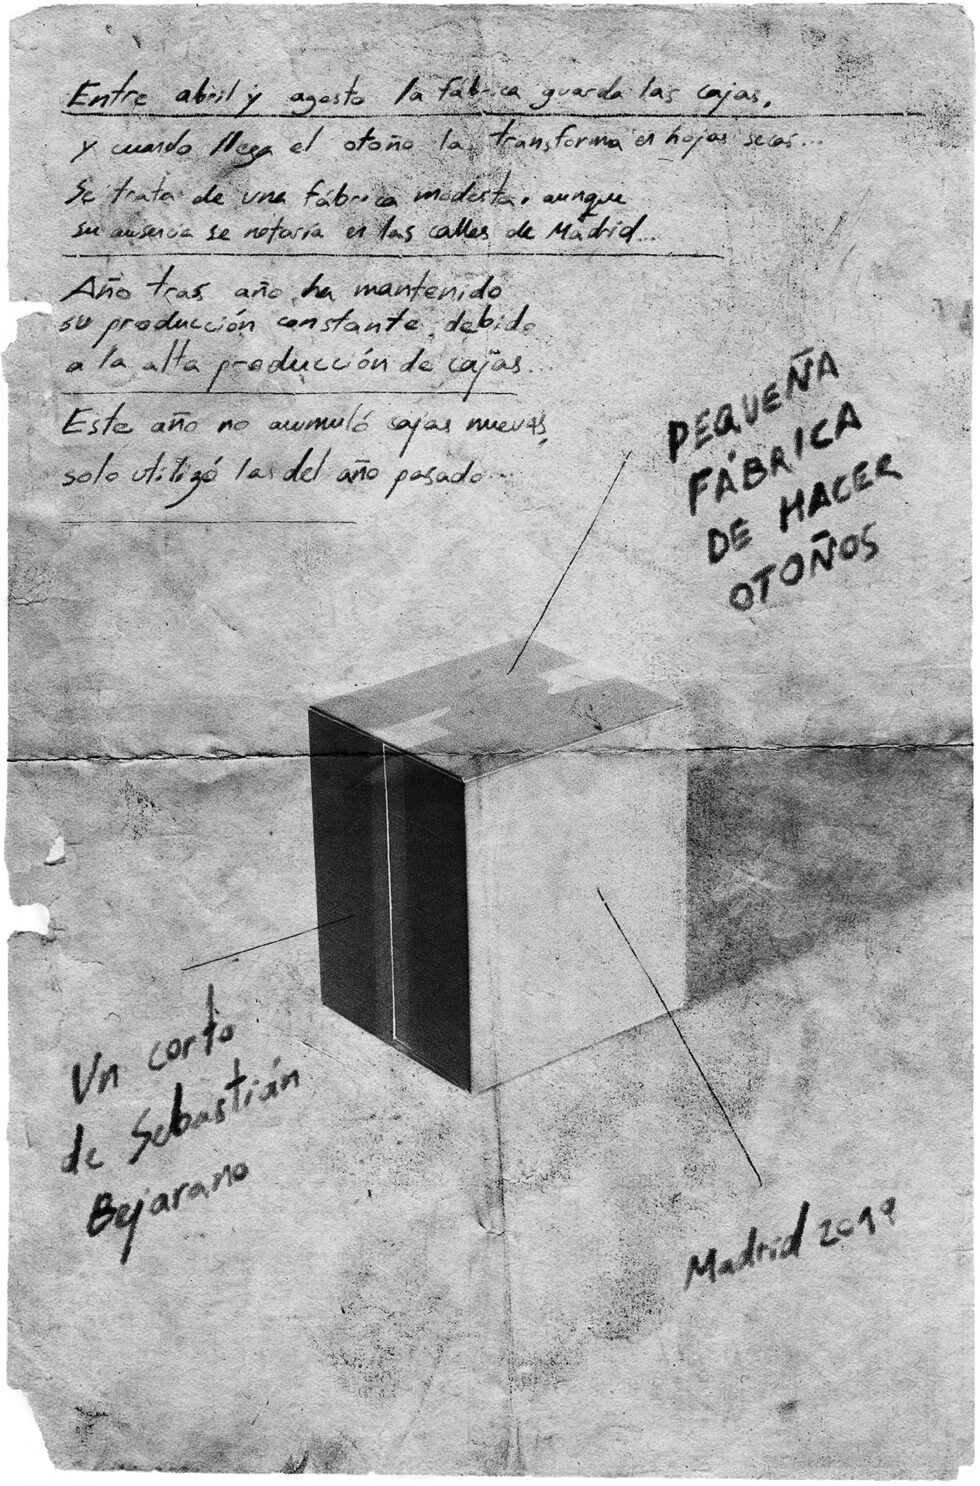 Entre abril y agosto la fábrica guarda las cajas,
y cuando llega el otoño la transforma en hojas secas...
Se trata de una fábrica modesta, aunque
su ausencia se notaría en las calles de Madrid...
Año tras año ha mantenido
su producción constante, debido
a la alta producción de cajas...
Este año no acumuló cajas nuevas,
solo utilizó las del año pasado...
PEQUEÑA
FÁBRICA
DE HACER
OTOÑOS
Un corto
de Sebastián
Bejarano
Madrid 2019